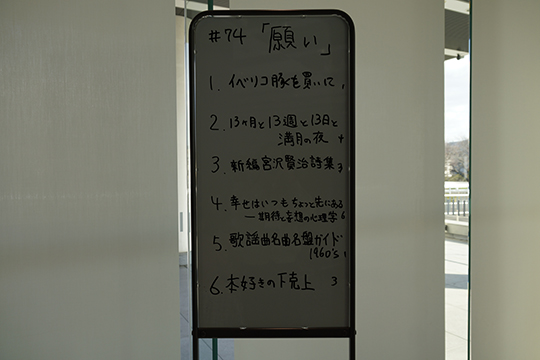 #74 「願い」
1. イベリコ豚を買いに 1
2. 13ヶ月と13週と13日と
満月の夜 4
3. 新編宮沢賢治詩集 3
4. 幸せはいつもちょっと先にある
ー期待と妄想の心理学 6
5. 歌謡曲名曲名盤ガイド
1960's 1
6. 本好きの下克上 3